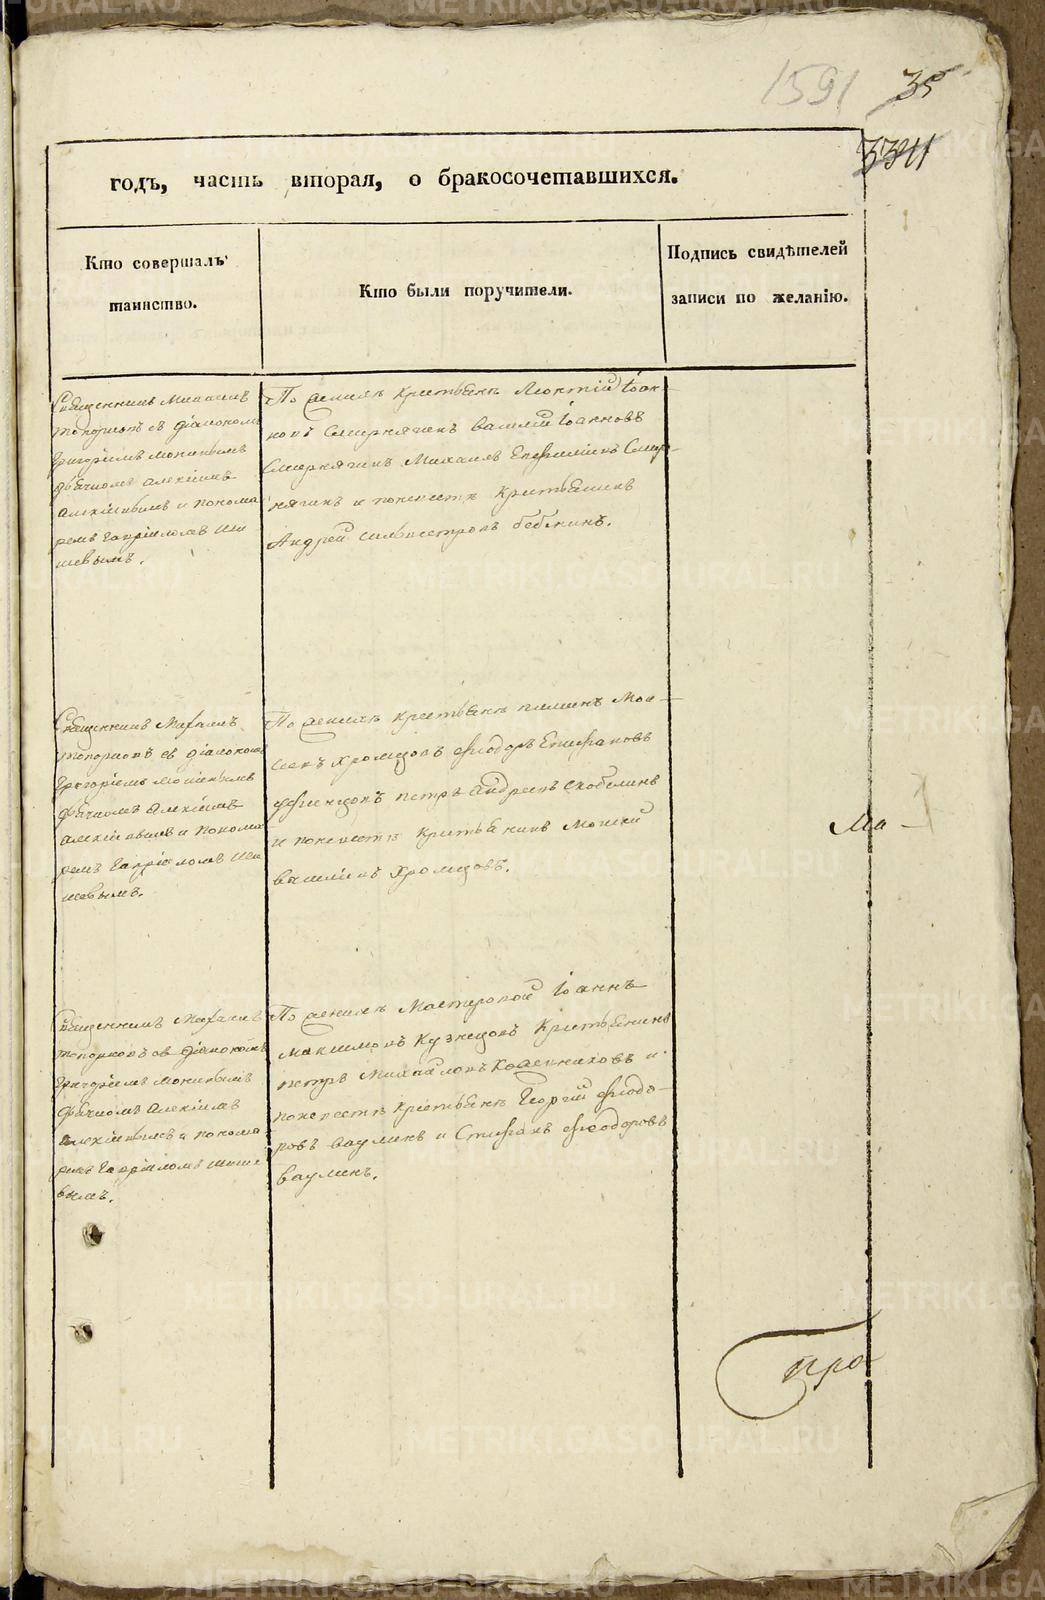 1591 35
3311
годъ, часть вторая, о бракосочетавшихся.
Кто совершалъ
таинство.
Кто были поручители.
Подпись свидѣтелей
записи по желанію.
Священникъ Михаилъ
Топорковъ съ діакономъ
Григоріемъ
дьячкомъ Алексіемъ
Алексіевымъ и понома
ремъ Гавріиломъ Ши
шевымъ.
По женихѣ крестьяне Леонтій Іоан-
новъ Смирнягинъ Василій Іоанновъ
Смирнягинъ Михаилъ Смир-
нягинъ и по невѣстѣ крестьянинъ
Андрей Сильвестровъ Бабкинъ.
Священникъ Михаилъ
Топорковъ съ діакономъ
Григоріемъ
дьячкомъ Алексіемъ
Алексіевымъ и понома
ремъ Гавріиломъ Ши
шевымъ.
По женихѣ крестьяне Мои-
сеевъ Хромцовъ Ѳеодоръ Епифановъ
Петръ Андреевъ Скобелинъ
и по невѣстѣ крестьянинъ Моисей
Васильевъ Хромцовъ.
Ма-
Священникъ Михаилъ
Топорковъ съ діакономъ
Григоріемъ
дьячкомъ Алексіемъ
Алексіевымъ и понома
ремъ Гавріиломъ Шише
вымъ.
По женихѣ Мастеровой Іоаннъ
Максимовъ Кузнецовъ крестьянинъ
Петръ Михайловъ и
по невѣстѣ крестьяне Георгій Ѳеодо-
ровъ Ваулинъ и Стефанъ Ѳеодоровъ
Ваулинъ.
Про
METRIKI.GASO-URAL.RU